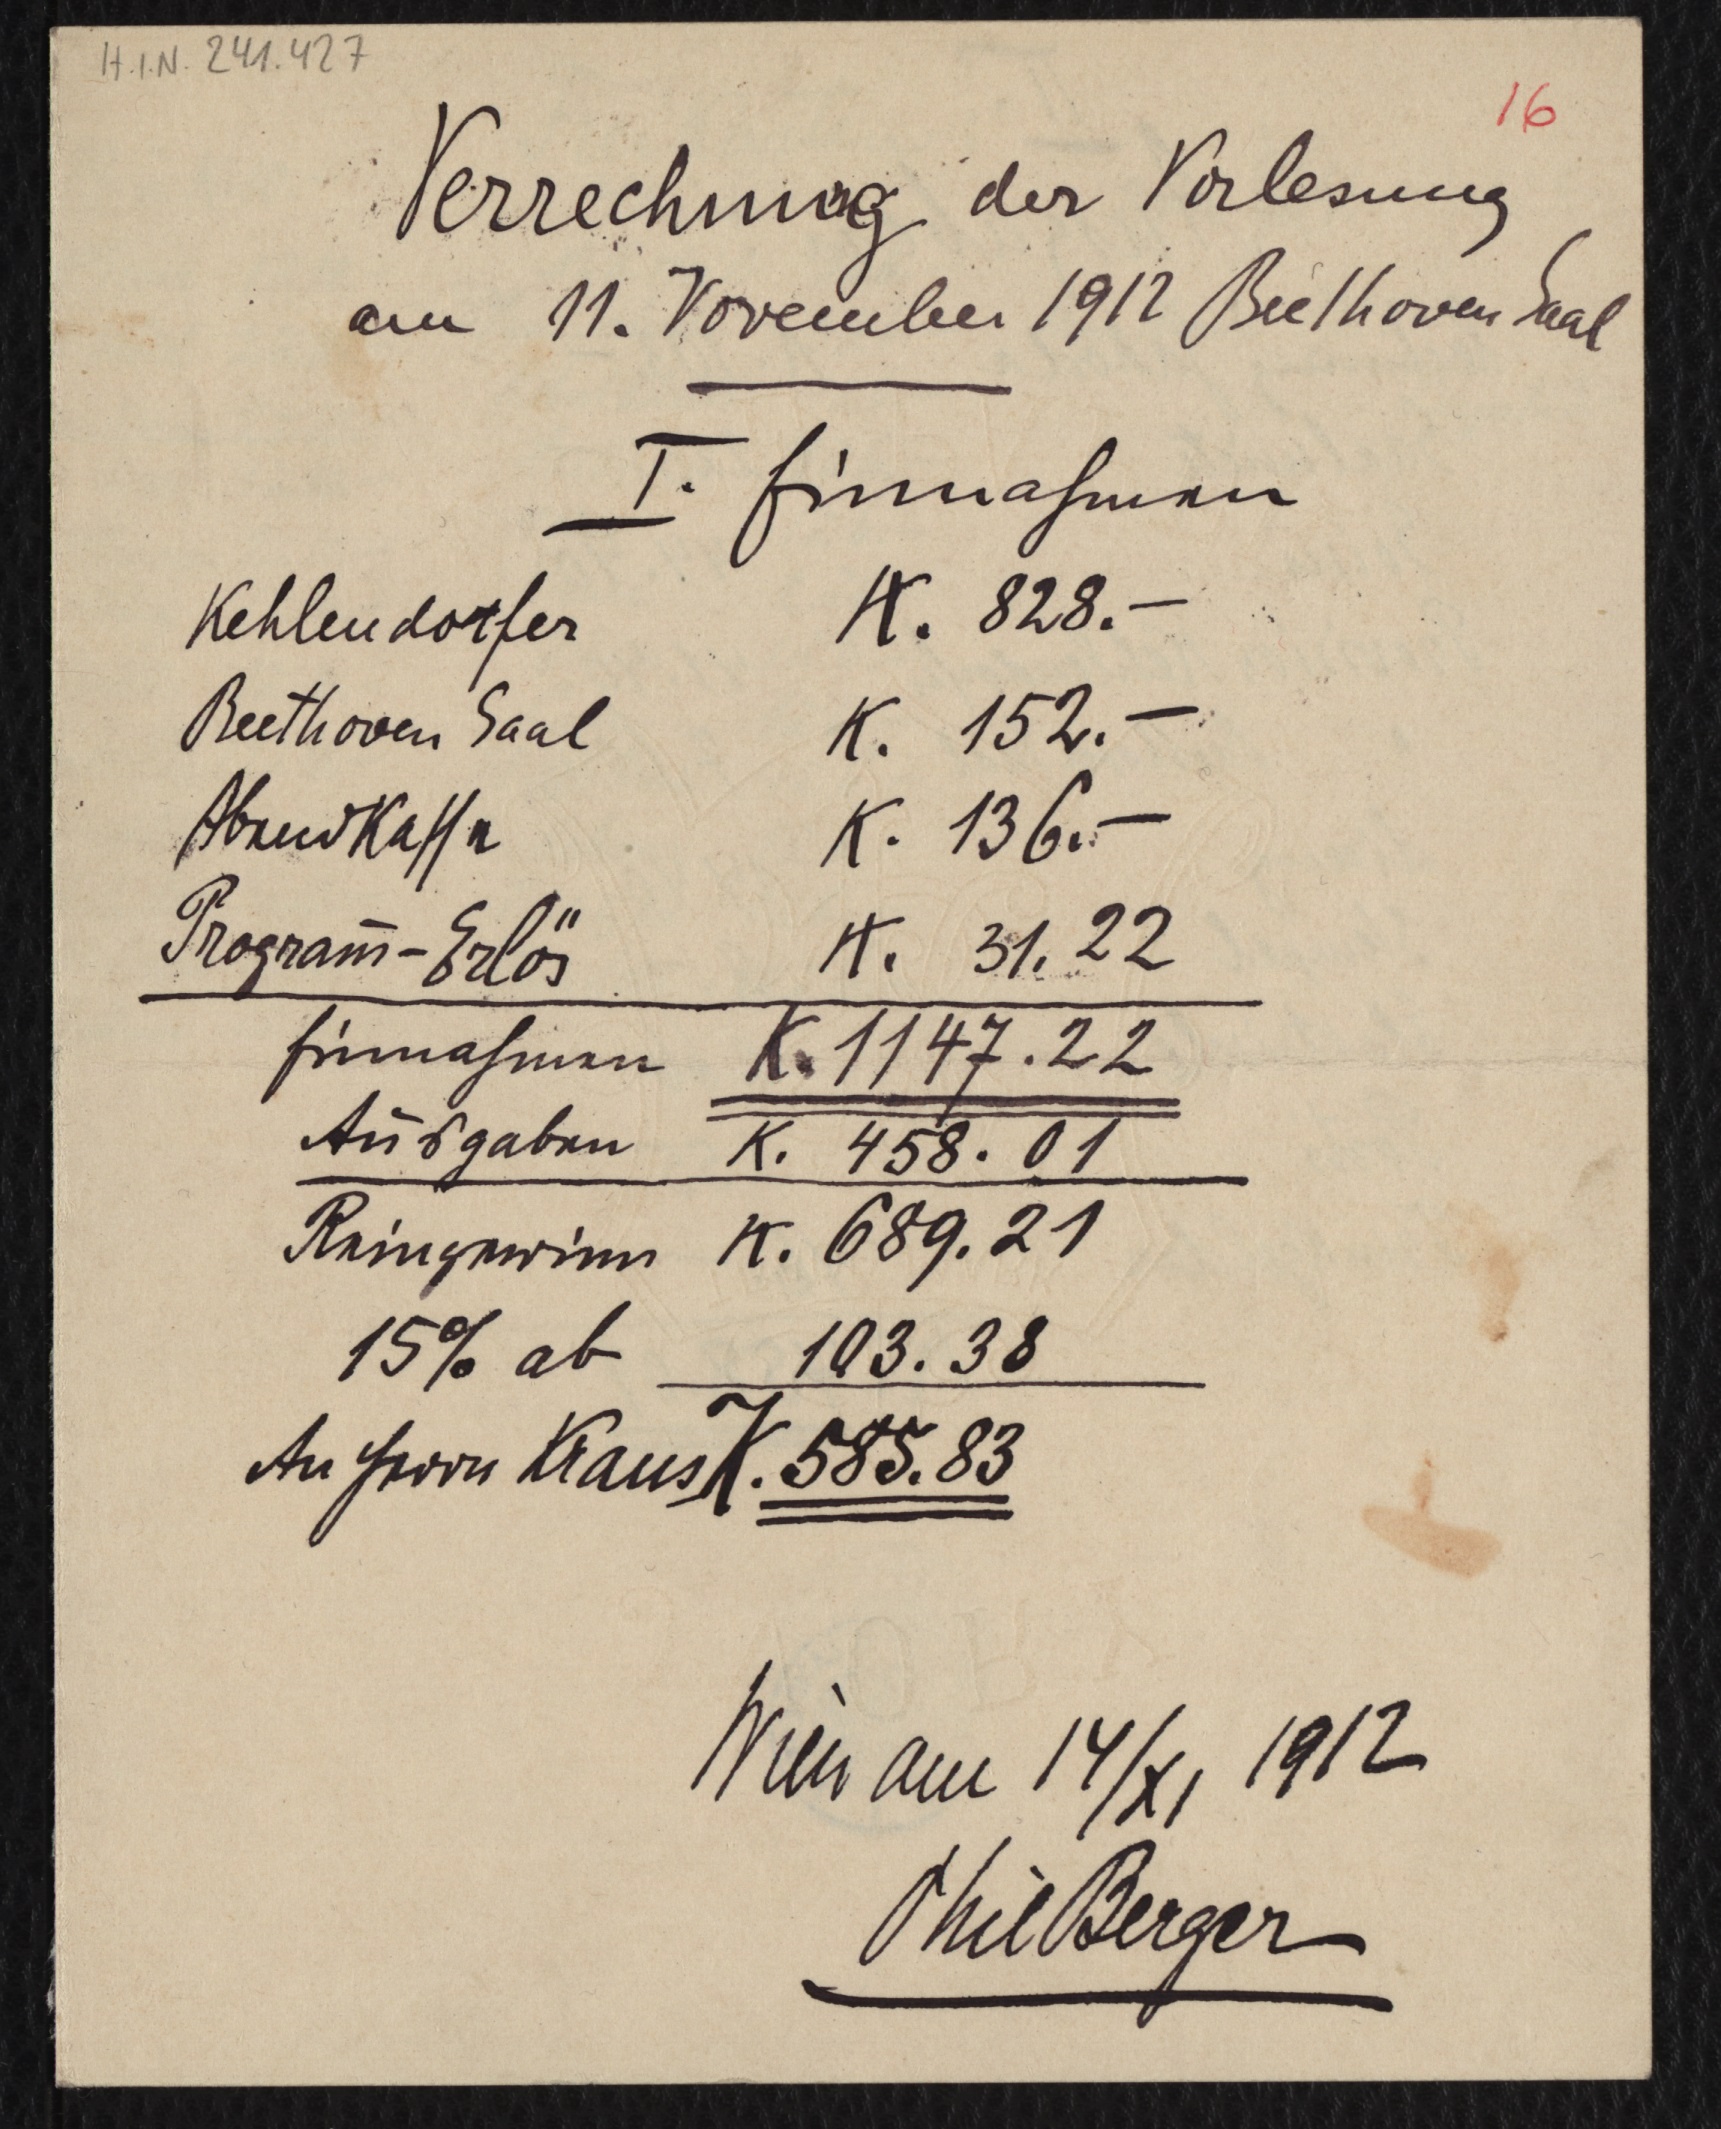 H.I.N. 241.427
16
Verrechnung der Vorlesung
am 11. November 1912 Beethoven Saal
I. Einnahmen
Kehlendorfer K. 828.–
Beethoven Saal K. 152.–
AbendKassa K. 136.–
Program̄-Erlös K. 31.22
Einnahmen K. 1147.22
Ausgaben K. 458.01
Reingewinn K. 689.21
15% ab 103.38
An Herrn Kraus K. 585.83
Wien am 14/XI 1912
Phil Berger